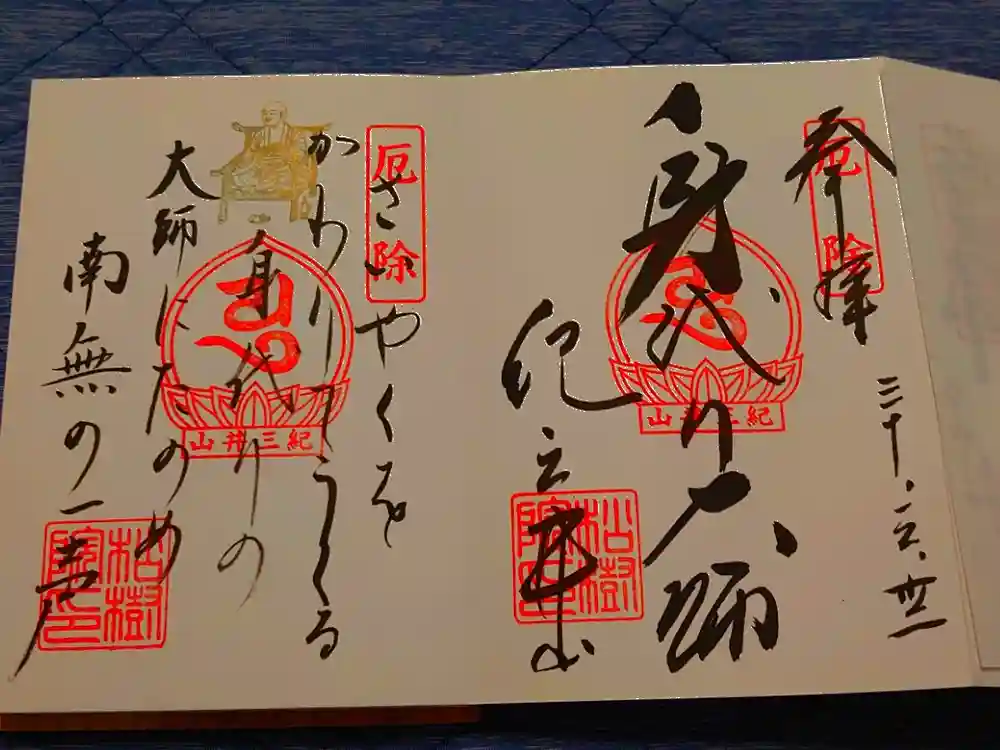 奉拝
厄除
三十.三.卅一
身代り大師
紀三井山
紀三井山
松樹院印
厄除
さいやくを
かわりてうくる
身代りの
大師にたのめ
南無の一声
紀三井山
松樹院印